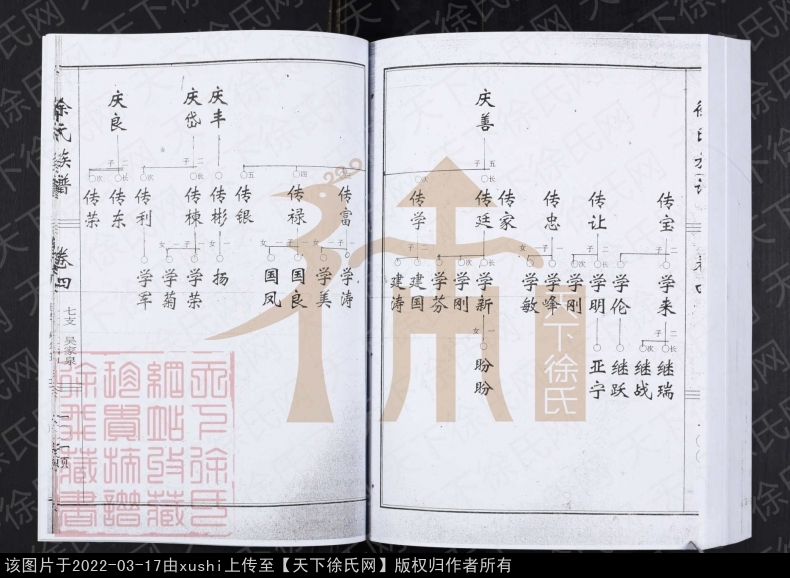 徐氏族谱
卷四
庆善
五子
传宝
传让
传忠
传家
传廷
传学
二子
一子
一女
学来
学伦
学明
学刚
学峰
学敏
学新
学刚
学芬
建国
建涛
二子
长
次
继瑞
继战
继跃
亚宁
盼盼
传富
传禄
传银
四
五
学涛
学美
国良
国凤
庆丰
庆岱
庆良
二子
长
次
传彬
传栋
传利
传东
传荣
扬
学荣
学菊
学军
徐氏族谱
卷四
七支
吴家泉
天下徐氏
天下徐氏网
该图片于2022-03-17由xushi上传至【天下徐氏网】版权归作者所有